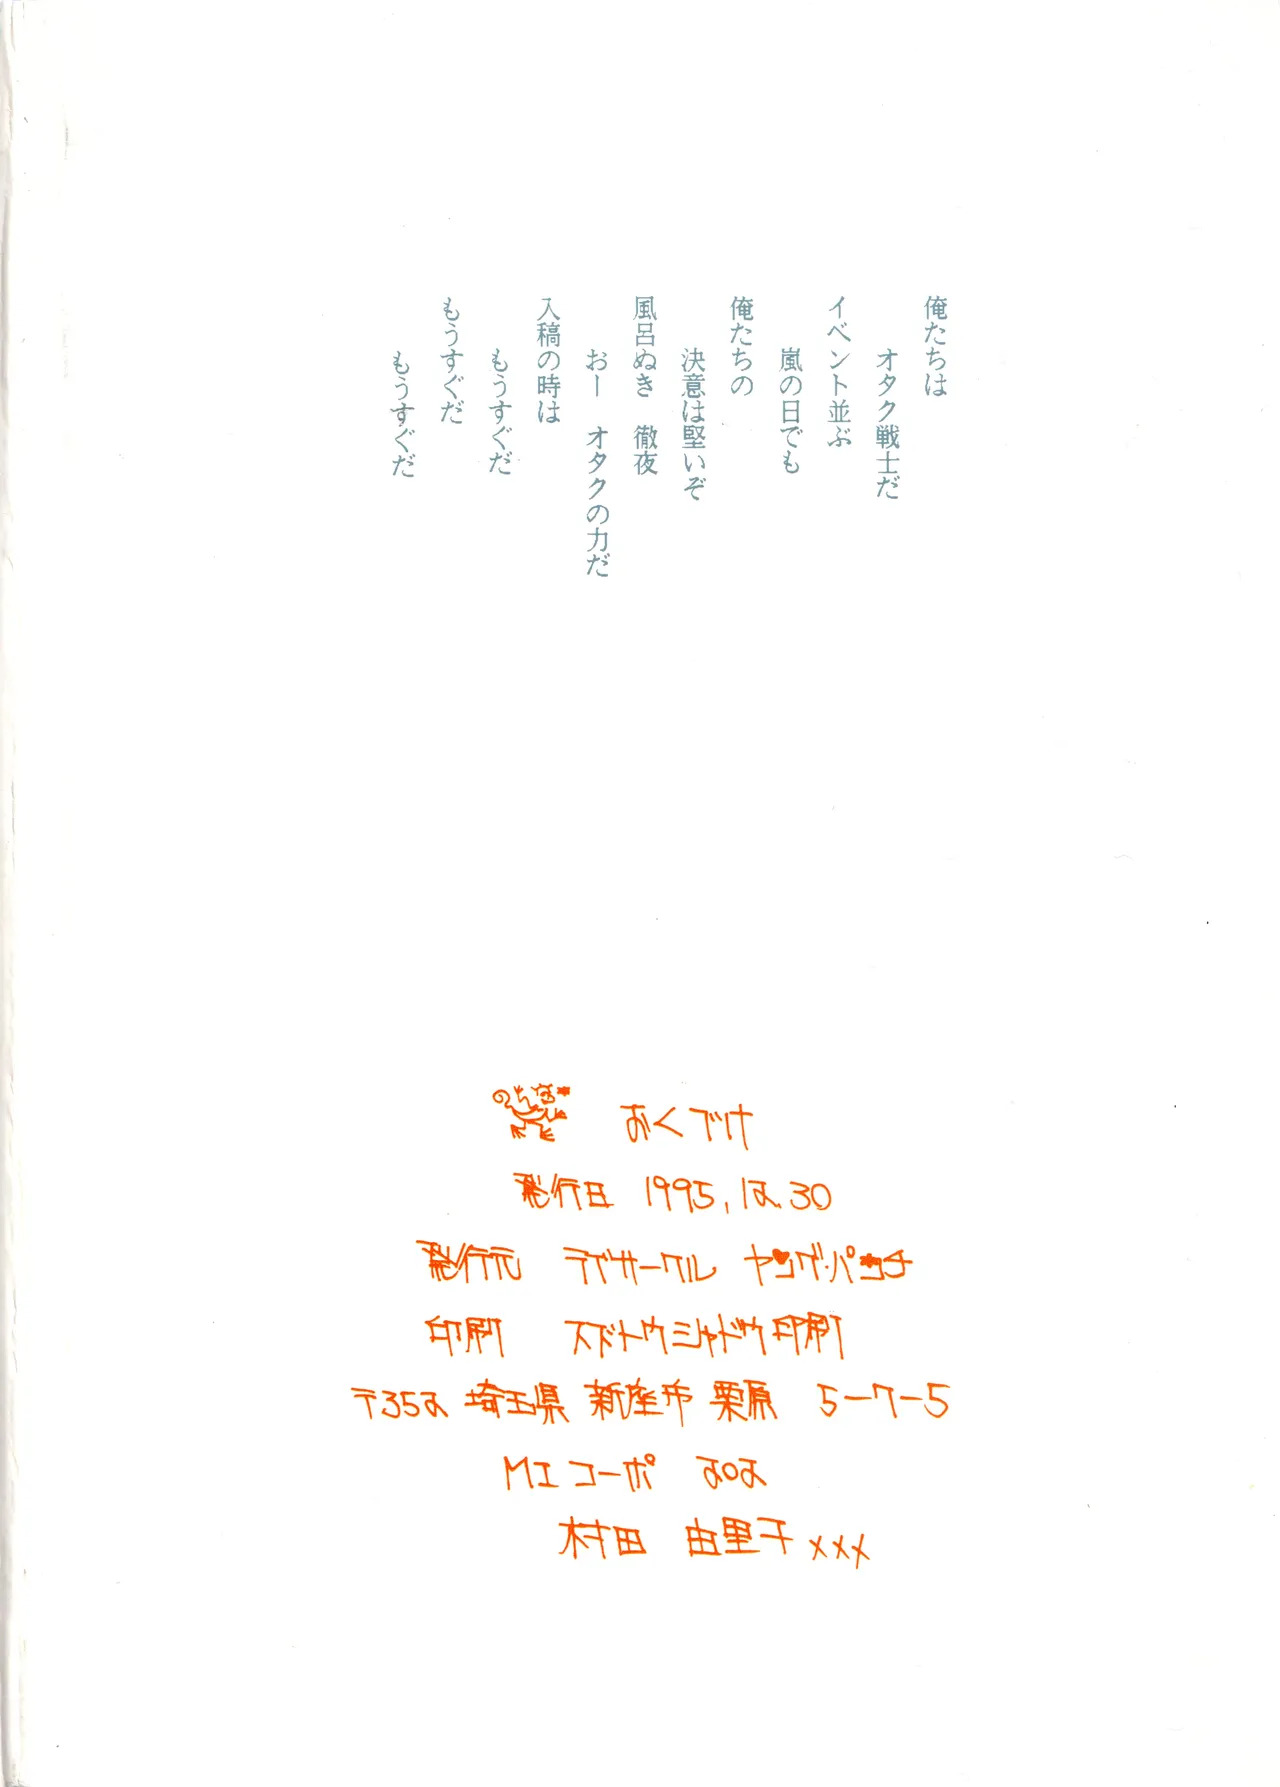 俺たちは
オタク戦士だ
イベント並ぶ
嵐の日でも
俺たちの
決意は堅いぞ
風呂ぬき 徹夜
おー オタクの力だ
入稿の時は
もうすぐだ
もうすぐだ
もうすぐだ
おくづけ
発行日 1995,12.30
発行元 ラブサークル ヤングパンチ
印刷 スドトウシャドウ印刷
〒352 埼玉県 新座市 栗原 5-7-5
MIコーポ 202
村田 由里子×××